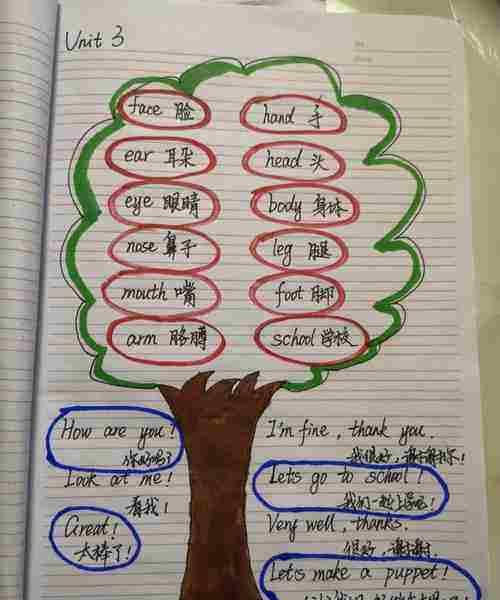 Unit 3
face 脸
hand 手
ear 耳朵
head 头
eye 眼睛
body 身体
nose 鼻子
leg 腿
mouth 嘴
foot 脚
arm 胳膊
school 学校
How are you!
你好吗?
I'm fine, thank you.
我很好,谢谢你!
Look at me!
看我!
Let's go to school!
我们一起上学吧!
Great!
太棒了!
Very well, thanks.
很好,谢谢.
Let's make a puppet!